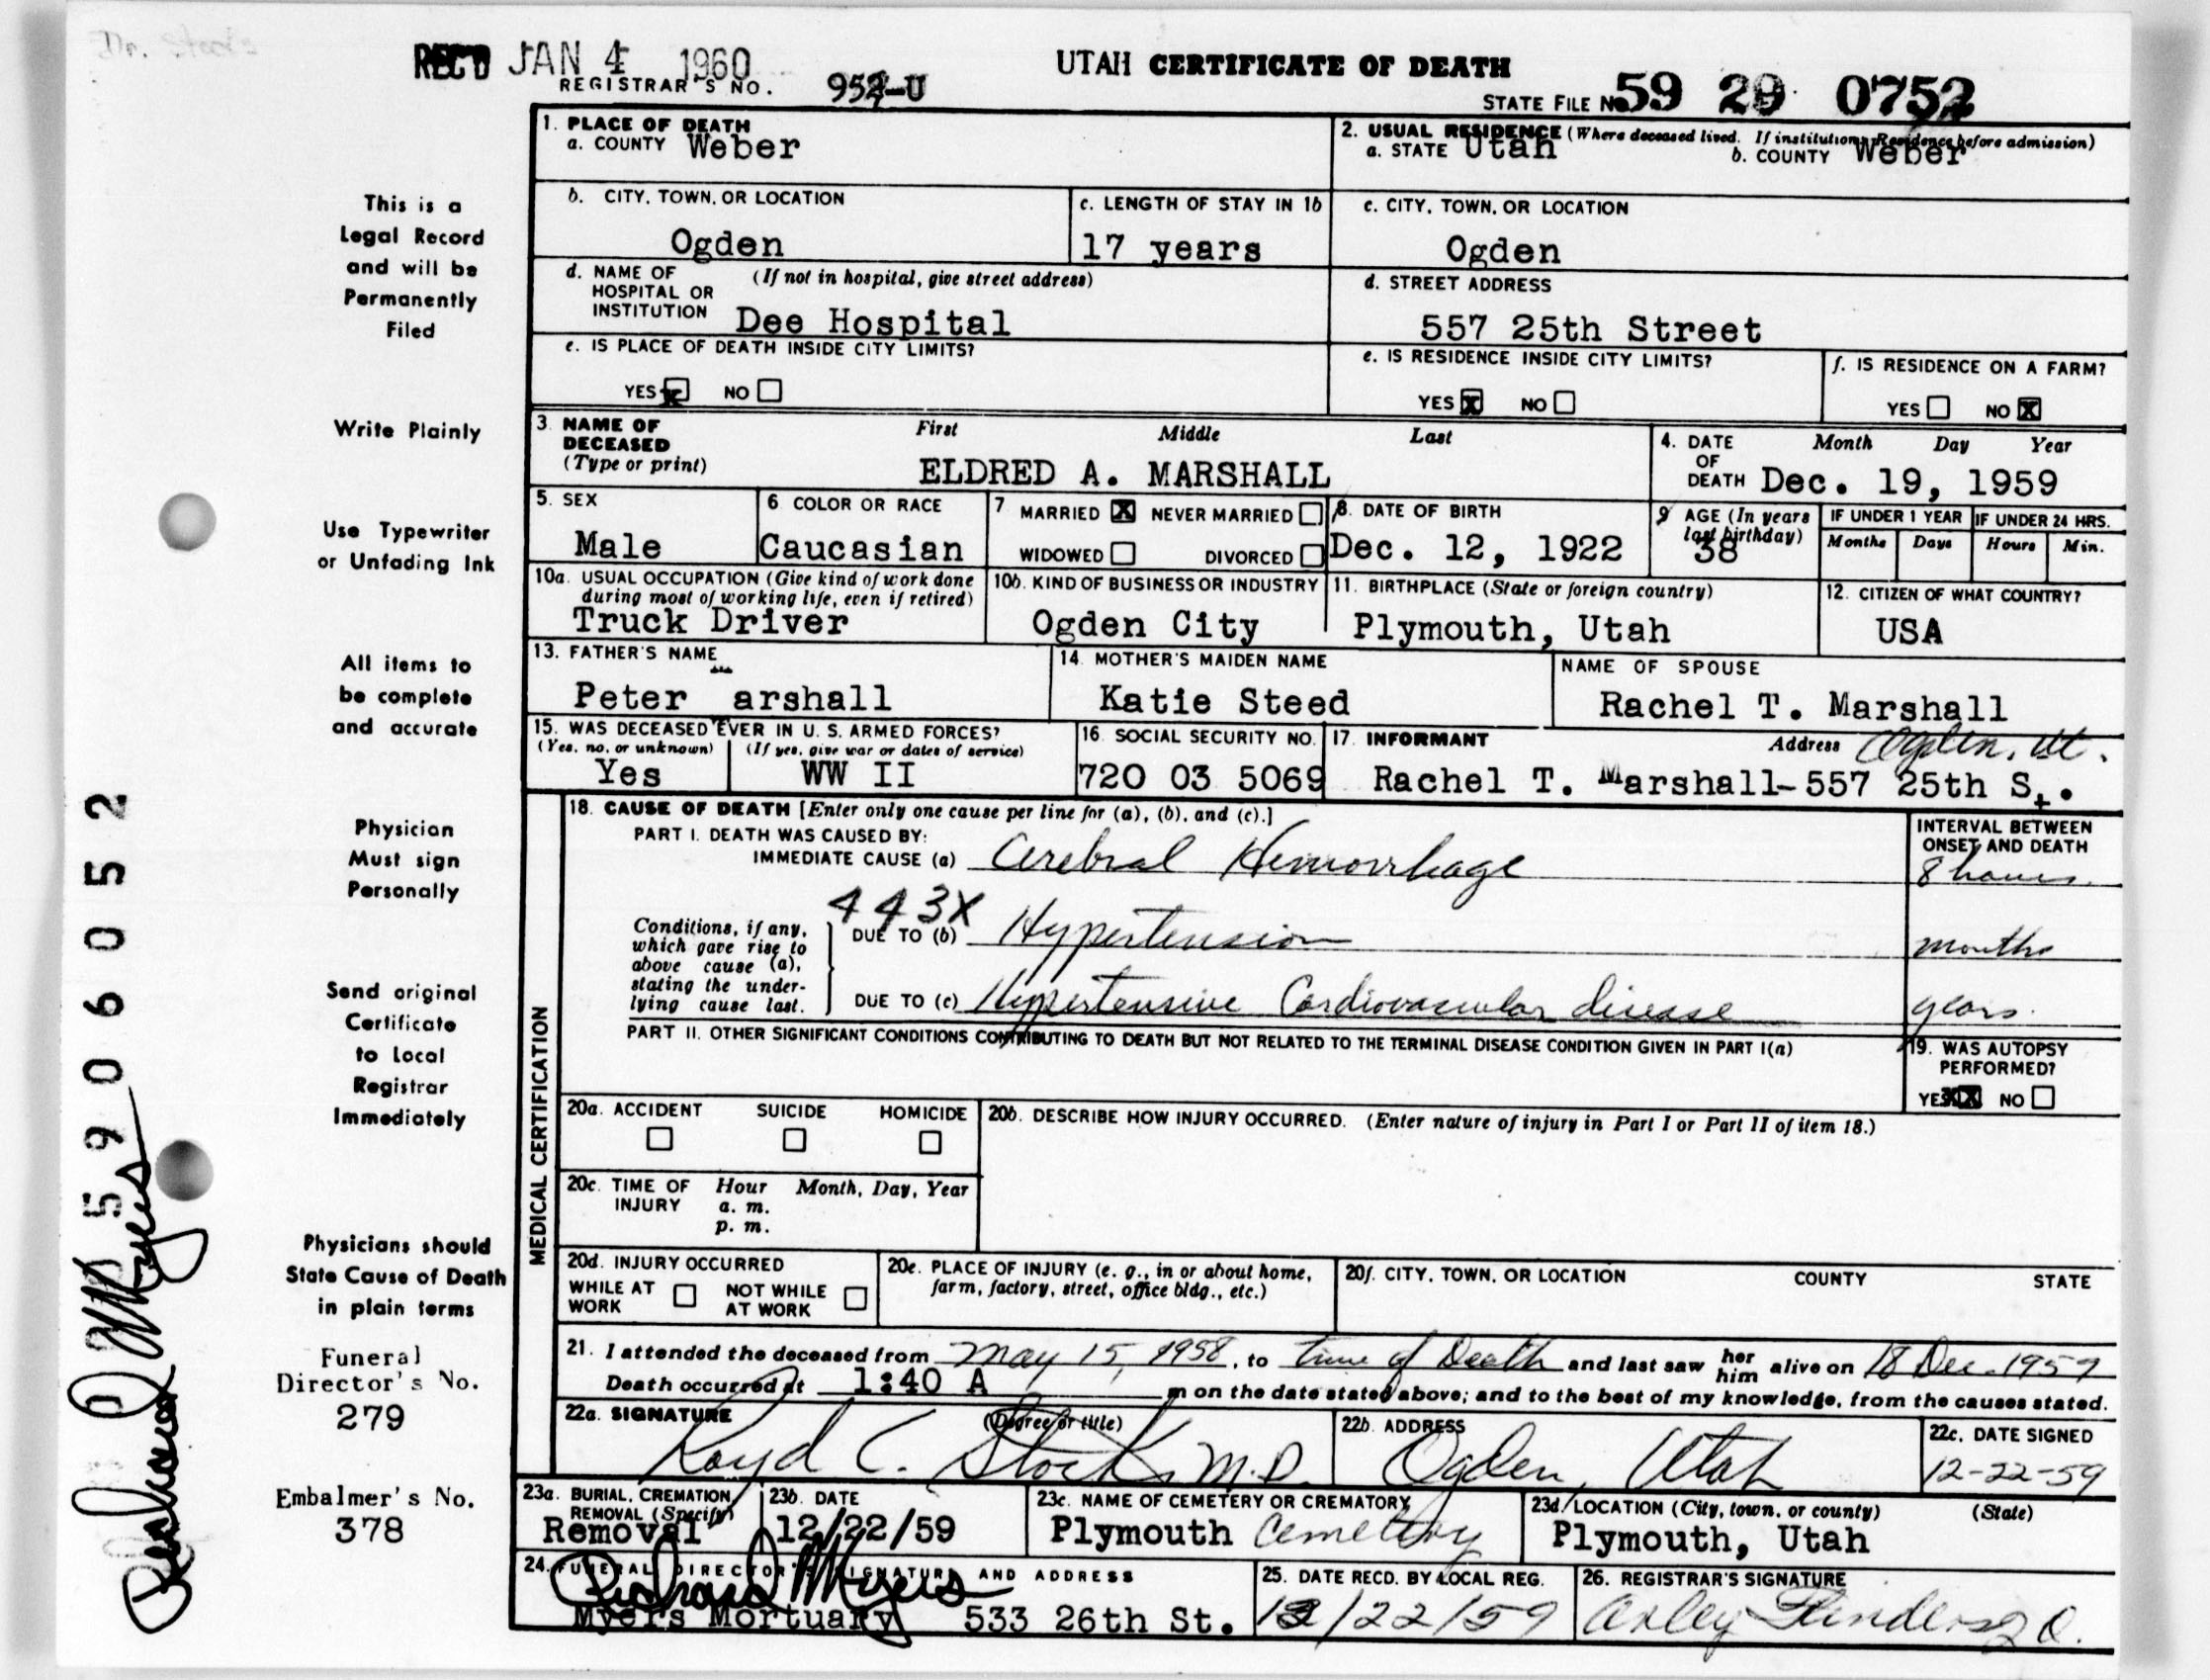 Dr. Stocks
REC'D JAN 4 1960
UTAH CERTIFICATE OF DEATH
REGISTRAR'S NO. 952-U
STATE FILE No 59 29 0752
1. PLACE OF DEATH
a. COUNTY Weber
2. USUAL RESIDENCE (Where deceased lived. If institution: Residence before admission)
a. STATE Utah b. COUNTY Weber
b. CITY, TOWN, OR LOCATION
Ogden
c. LENGTH OF STAY IN 1b
17 years
c. CITY, TOWN, OR LOCATION
Ogden
d. NAME OF HOSPITAL OR INSTITUTION (If not in hospital, give street address)
Dee Hospital
d. STREET ADDRESS
557 25th Street
e. IS PLACE OF DEATH INSIDE CITY LIMITS?
YES X NO
e. IS RESIDENCE INSIDE CITY LIMITS?
YES X NO
f. IS RESIDENCE ON A FARM?
YES NO X
3. NAME OF DECEASED (Type or print)
First Middle Last
ELDRED A. MARSHALL
4. DATE OF DEATH Month Day Year
Dec. 19, 1959
5. SEX
Male
6 COLOR OR RACE
Caucasian
7 MARRIED X NEVER MARRIED
WIDOWED DIVORCED
8. DATE OF BIRTH
Dec. 12, 1922
9 AGE (In years last birthday)
38
IF UNDER 1 YEAR
Months Days
IF UNDER 24 HRS.
Hours Min.
10a. USUAL OCCUPATION (Give kind of work done during most of working life, even if retired)
Truck Driver
10b. KIND OF BUSINESS OR INDUSTRY
Ogden City
11. BIRTHPLACE (State or foreign country)
Plymouth, Utah
12. CITIZEN OF WHAT COUNTRY?
USA
13. FATHER'S NAME
Peter arshall
14. MOTHER'S MAIDEN NAME
Katie Steed
NAME OF SPOUSE
Rachel T. Marshall
15. WAS DECEASED EVER IN U. S. ARMED FORCES?
(Yes, no, or unknown) (If yes, give war or dates of service)
Yes WW II
16. SOCIAL SECURITY NO.
720 03 5069
17. INFORMANT Address Ogden, Ut.
Rachel T. Marshall-557 25th St.
MEDICAL CERTIFICATION
18. CAUSE OF DEATH [Enter only one cause per line for (a), (b), and (c).]
PART I. DEATH WAS CAUSED BY:
IMMEDIATE CAUSE (a) Cerebral Hemorrhage
INTERVAL BETWEEN ONSET AND DEATH
8 hours.
443X
Conditions, if any, which gave rise to above cause (a), stating the underlying cause last.
DUE TO (b) Hypertension
months
DUE TO (c) Hypertensive Cardiovascular disease
years.
PART II. OTHER SIGNIFICANT CONDITIONS CONTRIBUTING TO DEATH BUT NOT RELATED TO THE TERMINAL DISEASE CONDITION GIVEN IN PART I(a)
19. WAS AUTOPSY PERFORMED?
YES XX NO
20a. ACCIDENT SUICIDE HOMICIDE
20b. DESCRIBE HOW INJURY OCCURRED. (Enter nature of injury in Part I or Part II of item 18.)
20c. TIME OF INJURY Hour Month, Day, Year
a. m.
p. m.
20d. INJURY OCCURRED
WHILE AT WORK NOT WHILE AT WORK
20e. PLACE OF INJURY (e. g., in or about home, farm, factory, street, office bldg., etc.)
20f. CITY, TOWN, OR LOCATION COUNTY STATE
21. I attended the deceased from May 15, 1958, to time of Death and last saw her him alive on 18 Dec. 1959
Death occurred at 1:40 A m on the date stated above; and to the best of my knowledge, from the causes stated.
22a. SIGNATURE (Degree or title)
Royd C. Stocks, M.D.
22b. ADDRESS
Ogden, Utah
22c. DATE SIGNED
12-22-59
23a. BURIAL, CREMATION, REMOVAL (Specify)
Removal
23b. DATE
12/22/59
23c. NAME OF CEMETERY OR CREMATORY
Plymouth Cemetery
23d. LOCATION (City, town, or county) (State)
Plymouth, Utah
24. FUNERAL DIRECTOR'S SIGNATURE AND ADDRESS
Richard Myers
Myers Mortuary 533 26th St.
25. DATE RECD. BY LOCAL REG.
12/22/59
26. REGISTRAR'S SIGNATURE
This is a
Legal Record
and will be
Permanently
Filed
Write Plainly
Use Typewriter
or Unfading Ink
All items to
be complete
and accurate
Physician
Must sign
Personally
Send original
Certificate
to Local
Registrar
Immediately
Physicians should
State Cause of Death
in plain terms
Funeral
Director's No.
279
Embalmer's No.
378
Richard Myers
5906052